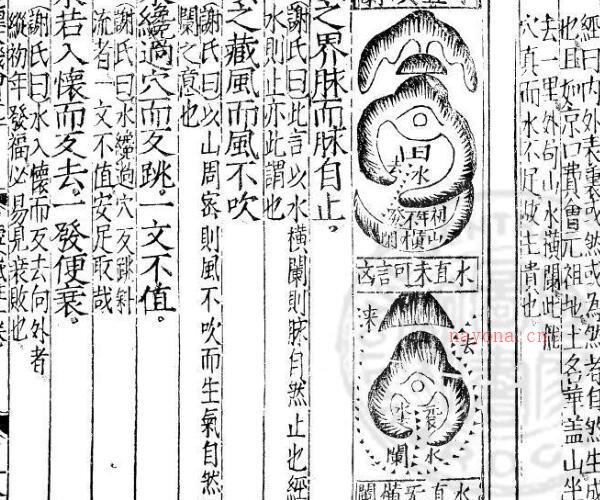 經曰內外表裏或然或為然者自然生成
也且如京口費會元祖地土名華蓋山坐
去一里外向山水橫闌此龍
穴真而水不足故主貴也
田水
初年
橫山
發
水直未可言凶
來
去
水
闌
之界脉而脉自止。
謝氏曰此言以水橫闌則脉自然止也經
水則止亦此謂也
之藏風而風不吹
謝氏曰以山周密則風不吹而生氣自然
闌之意也
纔過穴而反跳。一文不值。
謝氏曰水纔過穴反跳斜
流者一文不值安足取哉
若入懷而反去。一發便衰。
謝氏曰水入懷而反去向外者
縱初年發福必易見衰敗也
nayona.cn